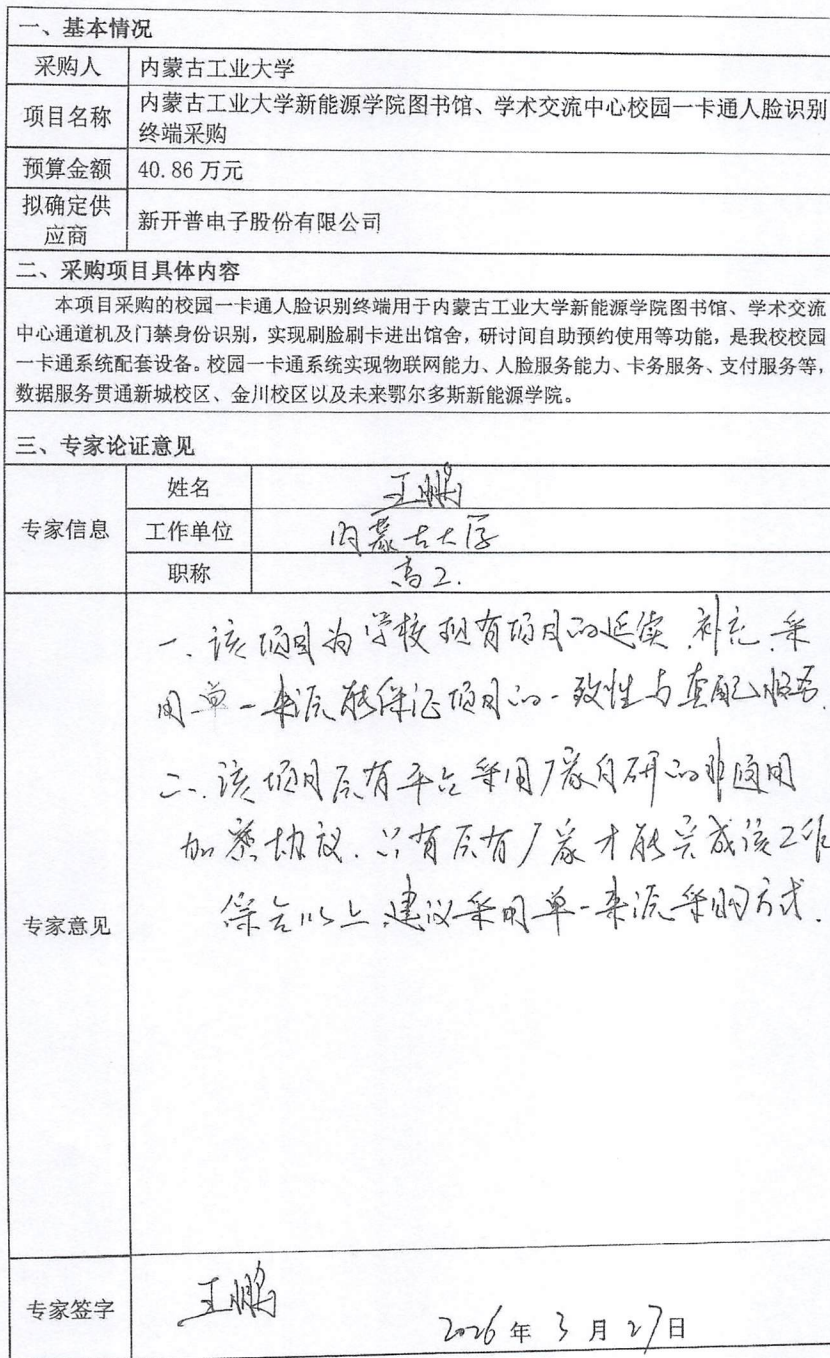 一、基本情况
采购人 内蒙古工业大学
项目名称 内蒙古工业大学新能源学院图书馆、学术交流中心校园一卡通人脸识别
终端采购
预算金额 40.86 万元
拟确定供
应商 新开普电子股份有限公司
二、采购项目具体内容
本项目采购的校园一卡通人脸识别终端用于内蒙古工业大学新能源学院图书馆、学术交流
中心通道机及门禁身份识别，实现刷脸刷卡进出馆舍，研讨间自助预约使用等功能，是我校校园
一卡通系统配套设备。校园一卡通系统实现物联网能力、人脸服务能力、卡务服务、支付服务等，
数据服务贯通新城校区、金川校区以及未来鄂尔多斯新能源学院。
三、专家论证意见
专家信息
姓名 王鹏
工作单位 内蒙古大学
职称 高工.
专家意见
一、该项目为学校现有项目的延续、补充、采
用单一来源能保证项目的一致性与套配服务.
二、该项目原有平台采用厂家自研的非通用
加密协议.只有原有厂家才能完成该工作
综合以上、建议采用单一来源采购方式.
专家签字 王鹏
2026 年 3 月 27 日